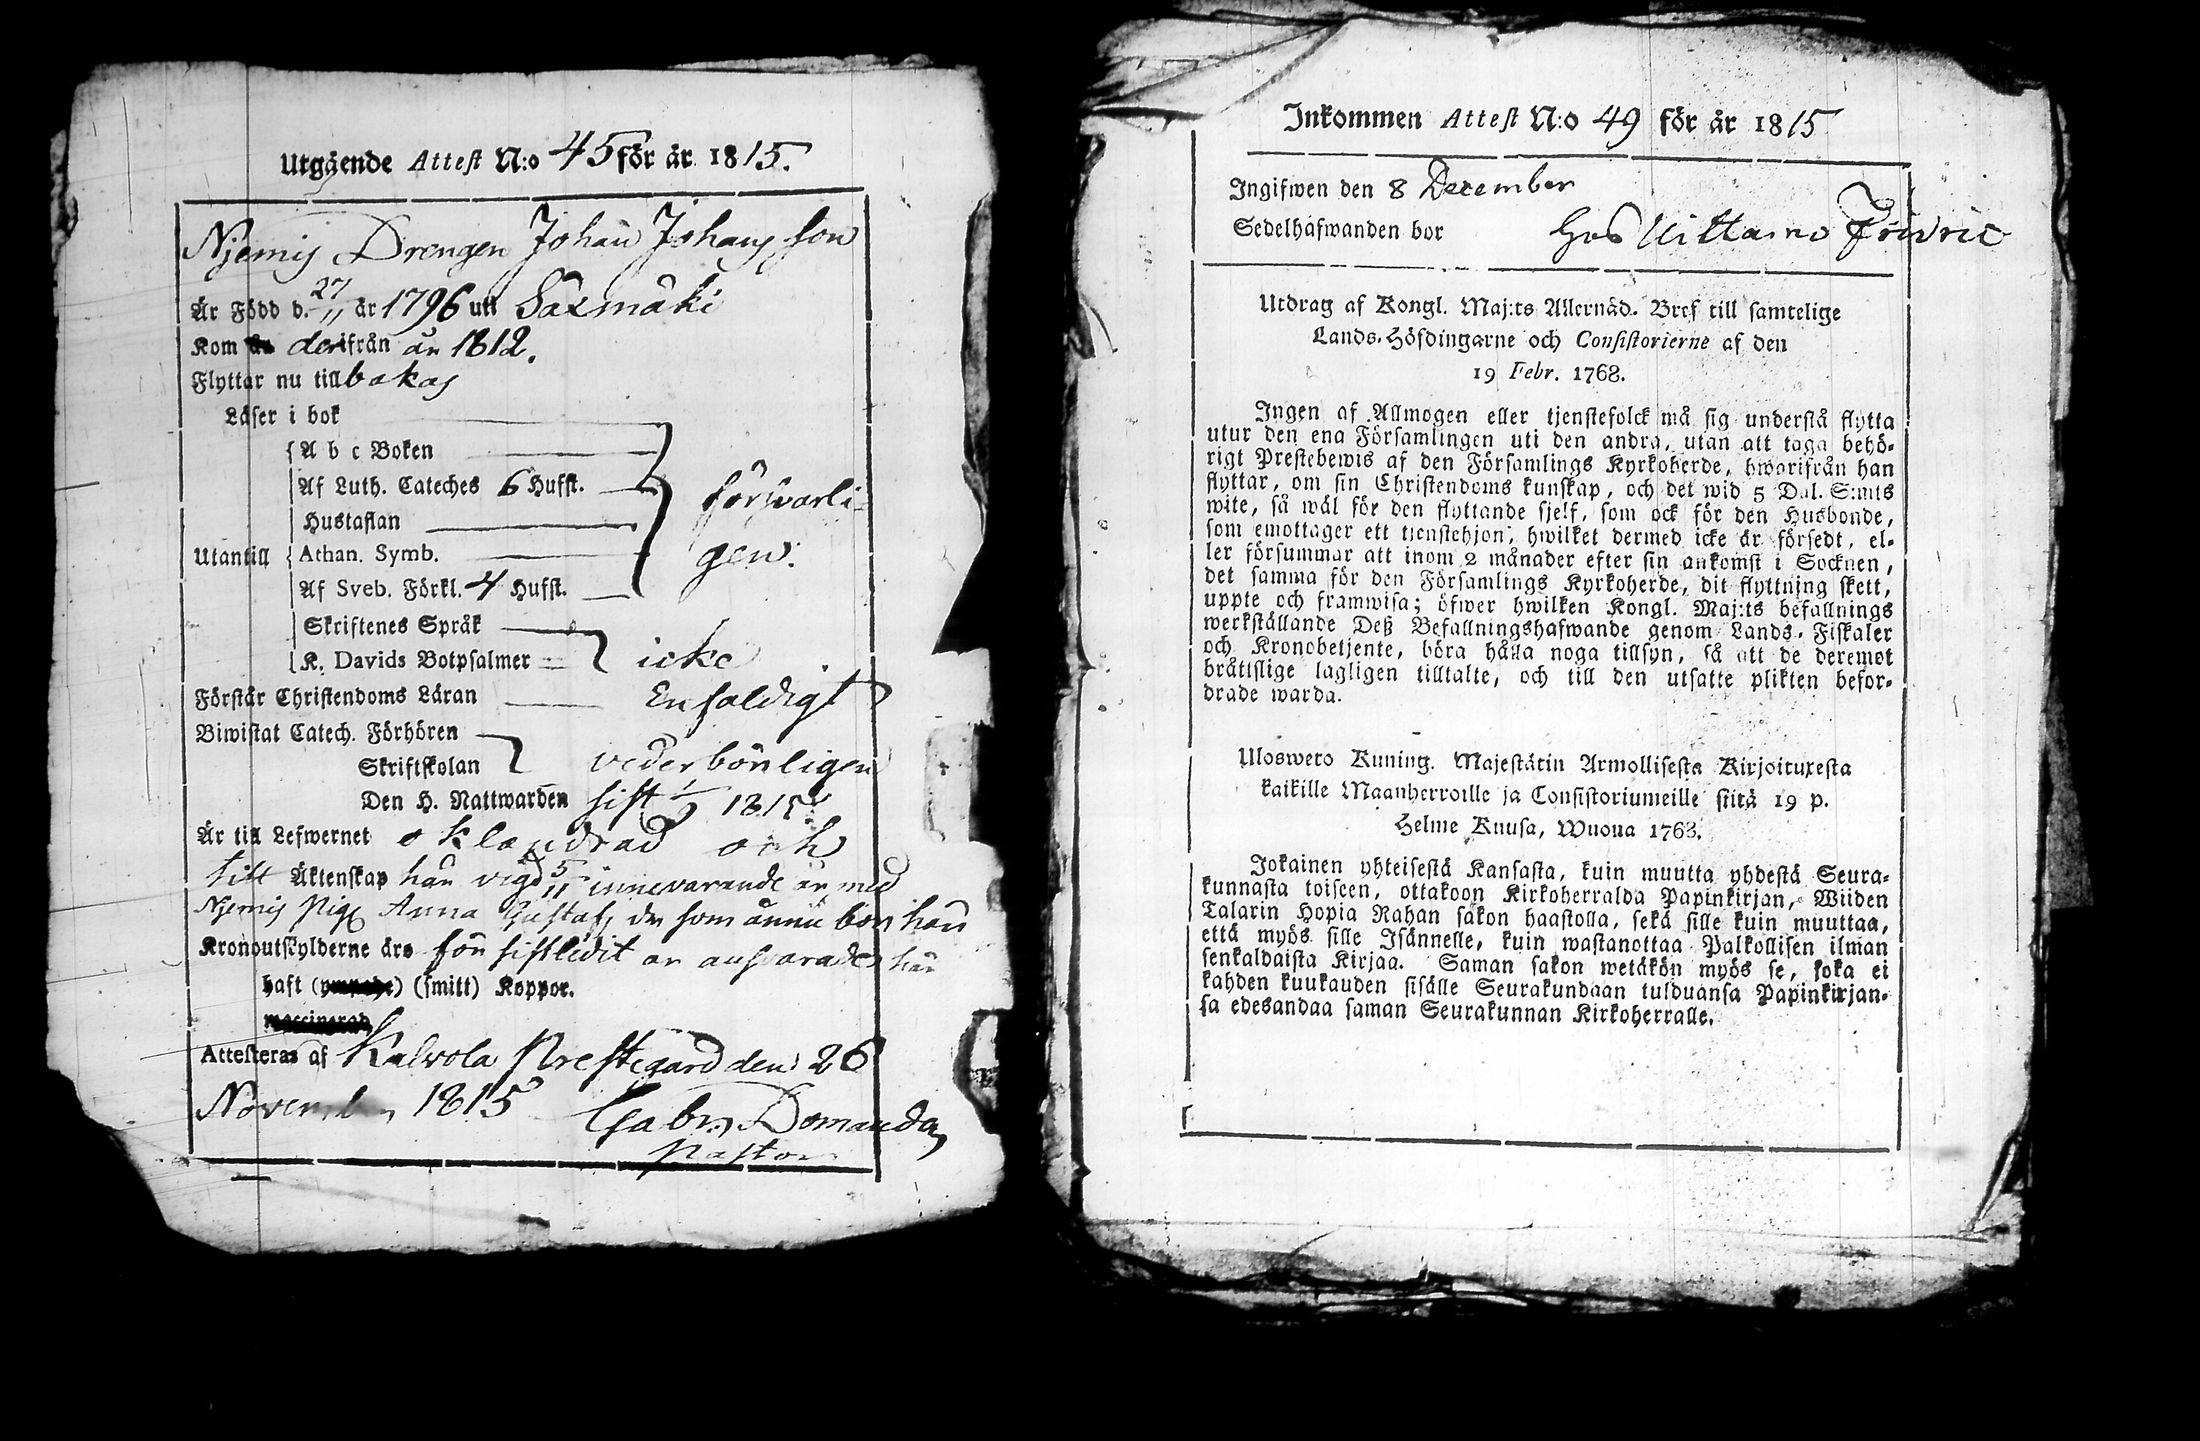 Utgående Attest N:o 45 för år 1815.
Njemis Drengen Johan Johans son
Är Född d. 27/11 år 1796 uti Saxmäki
Kom derifrån år 1812.
Flyttar nu tillbakas
Läser i bok
A b c Boken
Af Luth. Cateches 6 Hufst.
Hustaflan
försvarli-
gen.
Utantill
Athan. Symb.
Af Sveb. Förkl. 4 Hufst.
Skriftenes Språk
K. Davids Botpsalmer
icke
Förstår Christendoms Läran Enfaldigt
Biwistat Catech. Förhören
Skriftskolan vederbörligen
Den H. Nattwarden sist 1815
Är till Lefwernet oklandrad och
till Äktenskap här vigd 5/11 innevarande år med
Njemis Pig. Anna Gustafs dr som ännu bor här
Kronoutskylderne äro för sistledit år ansvarade här
haft () (smitt) Koppor.
Attesteras af Kalvola Prestegård den 26
November 1815 Gabr. Domander
Pastor
Inkommen Attest N:o 49 för år 1815
Ingifwen den 8 December
Sedelhafwanden bor hos Uittamo Fridric
Utdrag af Kongl. Maj:ts Allernåd. Bref till samtelige
Lands-Höfdingarne och Consistorierne af den
19 Febr. 1768.
Ingen af Allmogen eller tjenstefolck må sig understå flytta
utur den ena Församlingen uti den andra, utan att taga behö-
rigt Prestebewis af den Församlings Kyrkoherde, hwarifrån han
flyttar, om sin Christendoms kunskap, och det wid 5 Dal. S:mts
wite, så wäl för den flyttande sjelf, som ock för den Husbonde,
som emottager ett tienstehjon, hwilket dermed icke är försedt, el-
ler försummar att inom 2 månader efter sin ankomst i Socknen,
det samma för den Församlings Kyrkoherde, dit flyttning skett,
uppte och framwisa; öfwer hwilken Kongl. Maj:ts befallnings
werkställande Deß Befallningshafwande genom Lands-Fiskaler
och Kronobetjente, böra hålla noga tillsyn, så att de deremot
bråttslige lagligen tilltalte, och till den utsatte plikten befor-
drade warda.
Ulosweto Kuning. Majestätin Armollisesta Kirjoituxesta
kaikille Maanherroille ja Consistoriumeille siitä 19 p.
Helme Kuusa, Wuona 1763.
Jokainen yhteisestä Kansasta, kuin muutta yhdestä Seura-
kunnasta toiseen, ottakoon Kirkoherralda Papinkirjan, Wiiden
Talarin Hopia Rahan sakon haastolla, sekä sille kuin muuttaa,
että myös sille Isännelle, kuin wastanottaa Palkollisen ilman
senkaldaista Kirjaa. Saman sakon wetäkön myös se, joka ei
kahden kuukauden sisälle Seurakundaan tulduansa Papinkirjan-
sa edesandaa saman Seurakunnan Kirkoherralle.